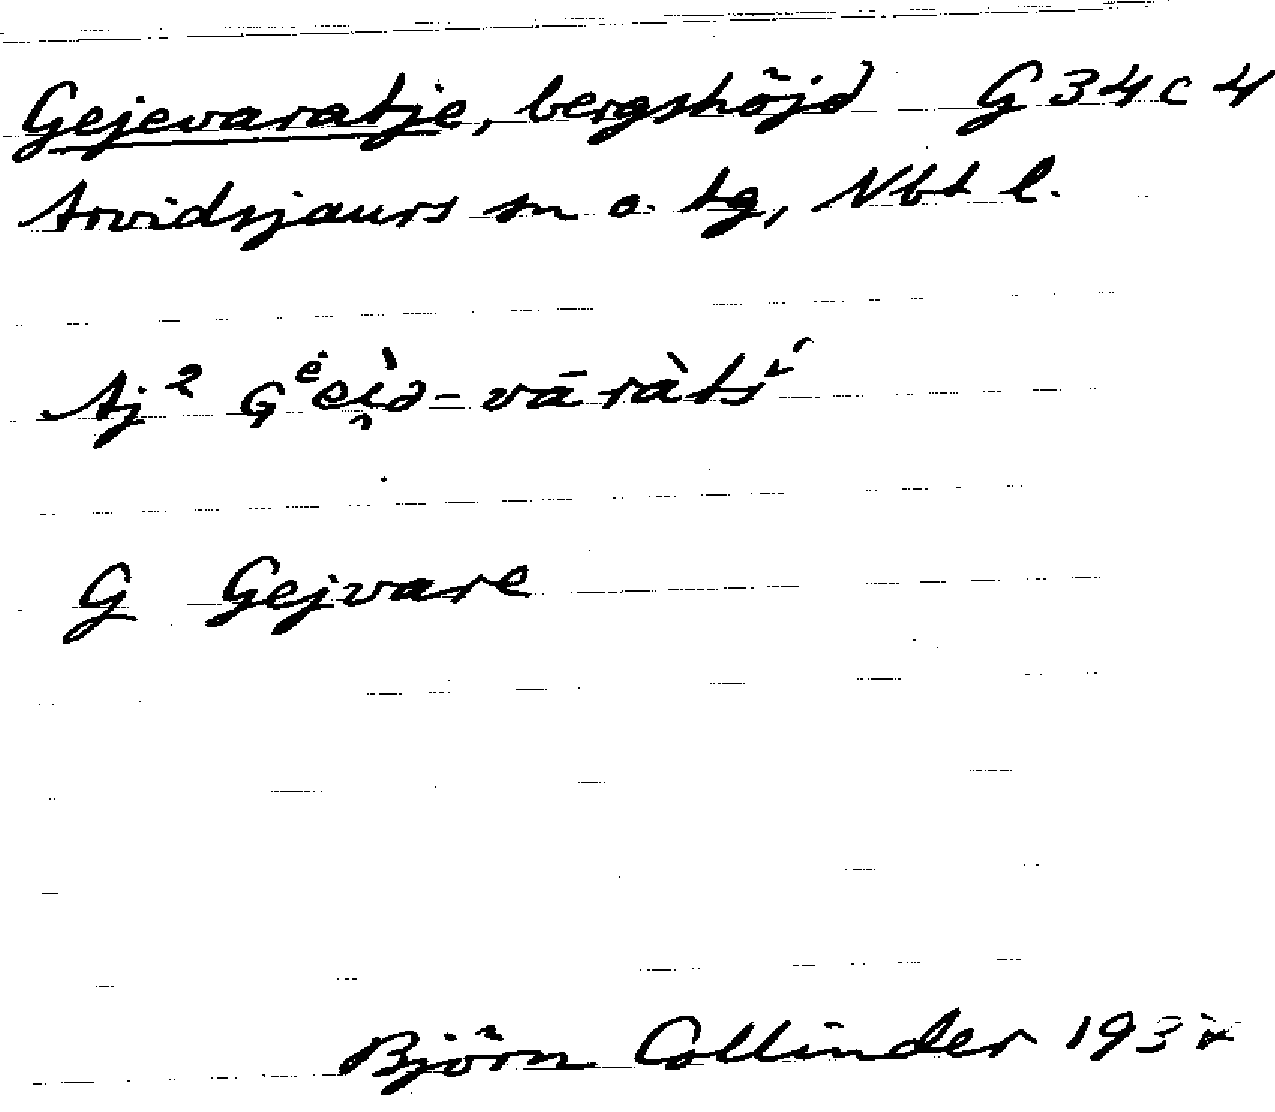 Gejevaratje, bergshöjd G 34 c 4
Arvidsjaurs sn o. tg, Nbt l.
Aj²
G Gejvare
Björn Collinder